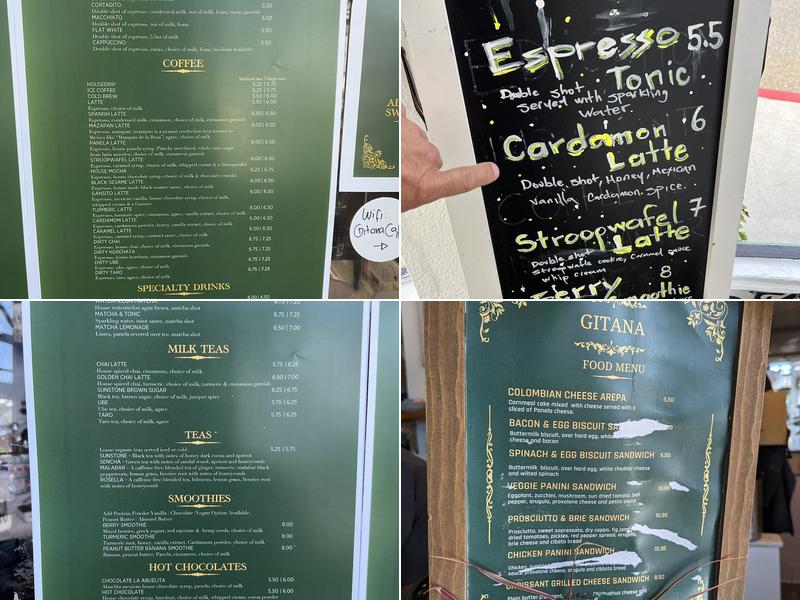 CORTADITO 5.50
Double shot of espresso, condensed milk, oat milk, foam, cacao garnish
MACCHIATO 5.00
Double shot of espresso, oz of milk, foam
FLAT WHITE 5.50
Double shot of espresso, 5.5oz of milk
CAPPUCCINO 5.50
Double shot of espresso, cacao, choice of milk, foam
COFFEE
HOUSEDRIP 5.25 | 5.75
ICE COFFEE 5.25 | 5.75
COLD BREW 5.50 | 6.00
LATTE 5.50 | 6.00
Espresso, choice of milk
SPANISH LATTE 6.00|6.50
Espresso, condensed milk, cinnamon, choice of milk, cinnamon garnish
MAZAPAN LATTE 6.00|6.50
Espresso, mazapan (mazapan is a peanut confection best known in
Mexico like "Mazapan de la Rosa"), agave, choice of milk
PANELA LATTE 6.00|6.50
Espresso, house panela syrup (Panela unrefined, whole cane sugar
from latin america), choice of milk, cinnamon garnish
STROOPWAFEL LATTE 6.00|6.50
Espresso, caramel syrup, choice of milk, whipped cream & a Stroopwafel
HOUSE MOCHA 6.25|6.75
Espresso, house chocolate syrup, choice of milk & chocolate crumbs
BLACK SESAME LATTE 6.00|6.50
Espresso, house made black sesame sauce, choice of milk
GANSITO LATTE 6.00|6.50
Espresso, mexican vanilla, house chocolate syrup, choice of milk,
whipped cream & a Gansito
TURMERIC LATTE 6.00|6.50
Espresso, turmeric spice, cinnamon, agave, vanilla extract, choice of milk
CARDAMOM LATTE 6.00|6.50
Espresso, cardamon powder, honey, vanilla extract, choice of milk
CARAMEL LATTE 6.00|6.50
Espresso, caramel syrup, caramel sauce, choice of milk
DIRTY CHAI 6.75 | 7.25
Espresso, house chai, choice of milk, cinnamon garnish
DIRTY HORCHATA 6.75 | 7.25
Espresso, house horchata, cinnamon garnish
DIRTY UBE 6.75 | 7.25
Espresso, ube, agave, choice of milk
DIRTY TARO 6.75 | 7.25
Espresso, taro, agave, choice of milk
SPECIALTY DRINKS
Wifi:
Espresso 5.5
Tonic
Double shot
served with sparkling
Water.
Cardamon 6
Latte
Double shot, Honey, Mexican
Vanilla Cardamon. Spice.
Stroopwafel 7
Latte
Double shot
stroopwafle cookie, caramel sauce
whip cream
8
House watermelon agua fresca, matcha shot
MATCHA & TONIC 6.75 | 7.25
Sparkling water, mint sauce, matcha shot
MATCHA LEMONADE 6.50 | 7.00
Limes, panela severed over ice, matcha shot
MILK TEAS
CHAI LATTE 5.75 | 6.25
House spiced chai, cinnamon, choice of milk
GOLDEN CHAI LATTE 6.50 | 7.00
House spiced chai, turmeric, choice of milk, turmeric & cinnamon garnish
SUNSTONE BROWN SUGAR 6.25 | 6.75
Black tea, brown sugar, choice of milk, juniper spice
UBE 5.75 | 6.25
Ube tea, choice of milk, agave
TARO 5.75 | 6.25
Taro tea, choice of milk, agave
TEAS
Loose organic teas served iced or cold 5.25 | 5.75
SUNSTONE - Black tea with notes of honey dark cocoa and apricot
SENCHA - Green tea with notes of sandal wood, apricot and honeycomb
MALABAR - A caffeine-free blended tea of ginger, turmeric, malabar black
peppercorn, lemon grass, licorice root with notes of honeycomb
ROSELLA - A caffeine free blended tea, hibiscus, lemon grass, licorice root
with notes of honeycomb
SMOOTHIES
Add Protein Powder Vanilla | Chocolate (Vegan Option Available)
Peanut Butter | Almond Butter
BERRY SMOOTHIE 8.00
Mixed berries, greek yogurt, red cayenne & hemp seeds, choice of milk
TURMERIC SMOOTHIE 8.00
Turmeric root, honey, vanilla extract, Cardamom powder, choice of milk
PEANUT BUTTER BANANA SMOOTHIE 8.00
Banana, peanut butter, Panela, cinnamon, choice of milk
HOT CHOCOLATES
CHOCOLATE LA ABUELITA 5.50 | 6.00
Abuelita mexican house chocolate syrup, panela, choice of milk
HOT CHOCOLATE 5.50 | 6.00
House chocolate syrup, hazelnut, choice of milk, whipped cream, cocoa powder
GITANA
FOOD MENU
COLOMBIAN CHEESE AREPA 5.50
Cornmeal cake mixed with cheese served with a
sliced of Panela cheese.
BACON & EGG BISCUIT
Buttermilk biscuit, over hard egg, white
cheese and bacon
SPINACH & EGG BISCUIT SANDWICH 9.50
Buttermilk biscuit, over hard egg, white cheddar cheese
and wilted spinach
VEGGIE PANINI SANDWICH 10.95
Eggplant, zucchini, mushroom, sun dried tomato, bell
pepper, arugula, provolone cheese and pesto sauce
PROSCIUTTO & BRIE SANDWICH 10.95
Prosciutto, sweet sopressata, dry coppa, fig jam,
dried tomatoes, pickles, red pepper spread, arugula,
brie cheese and ciabatta bread
CHICKEN PANINI SANDWICH 10.95
sauce, provolone cheese, arugula and ciabatta bread
CROISSANT GRILLED CHEESE SANDWICH 9.50